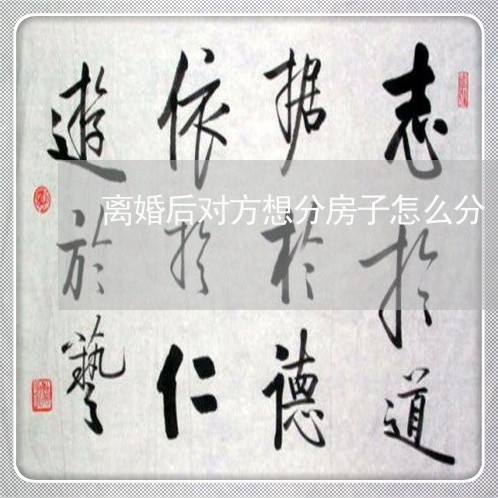 志於道
据於德
依於仁
遊於藝
离婚后对方想分房子怎么分